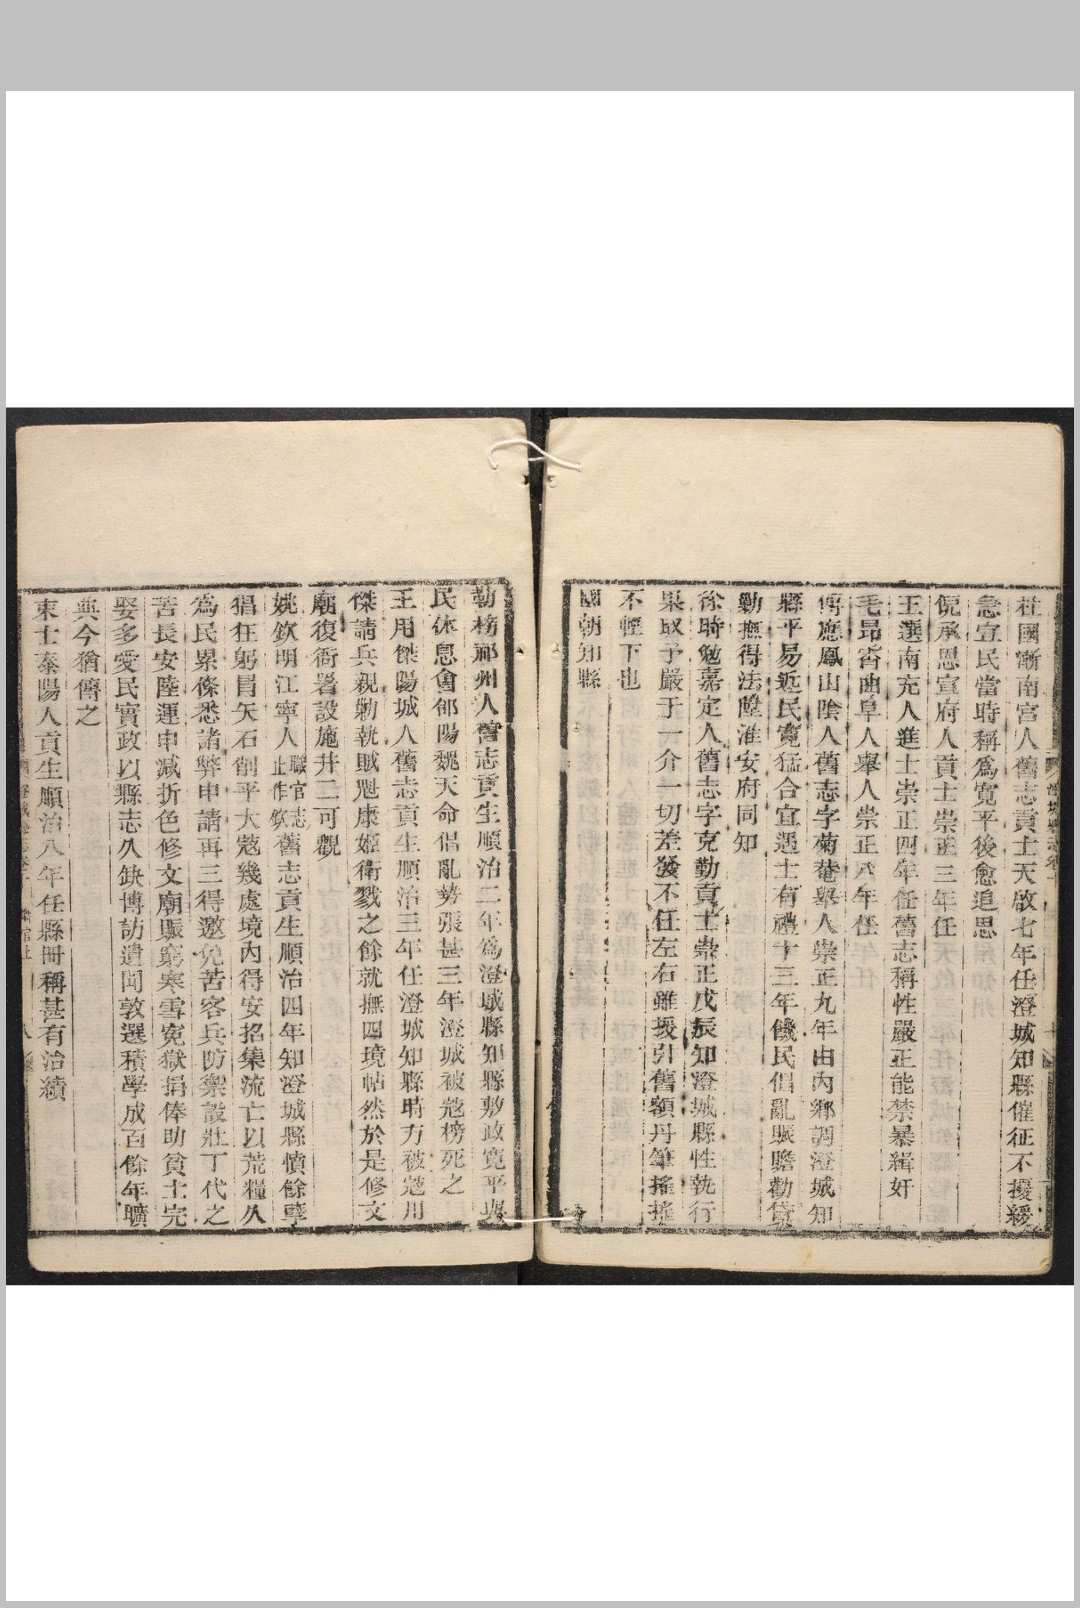 杜國漸南宮人舊志貢士天啟七年任澄城知縣催征不擾緩
急宜民當時稱為寬平後愈追思
倪承恩宣府人貢士崇正三年任
王選南充人進士崇正四年任舊志稱性嚴正能禁暴緝奸
毛昂霄曲阜人舉人崇正八年任
傅應鳳山陰人舊志字菊菴舉人崇正九年由內鄉調澄城知
縣平易近民寬猛合宜遇士有禮十三年饑民倡亂賑贍勸貸
勦撫得法陞淮安府同知
徐時勉嘉定人舊志字克勤貢士崇正戊辰知澄城縣性執行
果取予嚴于一介一切差發不任左右雖援引舊額丹筆搖搖
不輕下也
國朝知縣
勒榜祁州人舊志貢生順治二年為澄城縣知縣敷政寬平與
民休息會郃陽魏天命倡亂勢張甚三年澄城被寇榜死之
王用傑陽城人舊志貢生順治三年任澄城知縣時方被寇用
傑請兵親勦執賊魁康姬衛戮之餘就撫四境帖然於是修文
廟復衙署設施井二可觀
姚欽明江寧人職官志止作欽舊志貢生順治四年知澄城縣慎餘孽
猖狂躬冒矢石削平大寇幾處境內得安招集流亡以荒糧久
為民累條悉諸弊申請再三得邀免苦客兵防禦設壯丁代之
苦長安陸運申減折色修文廟賑窮寒雪冤獄捐俸助貧士完
娶多愛民實政以縣志久缺博訪遺聞敦選積學成百餘年曠
典今猶傳之
東士泰陽人貢生順治八年任縣冊稱甚有治績